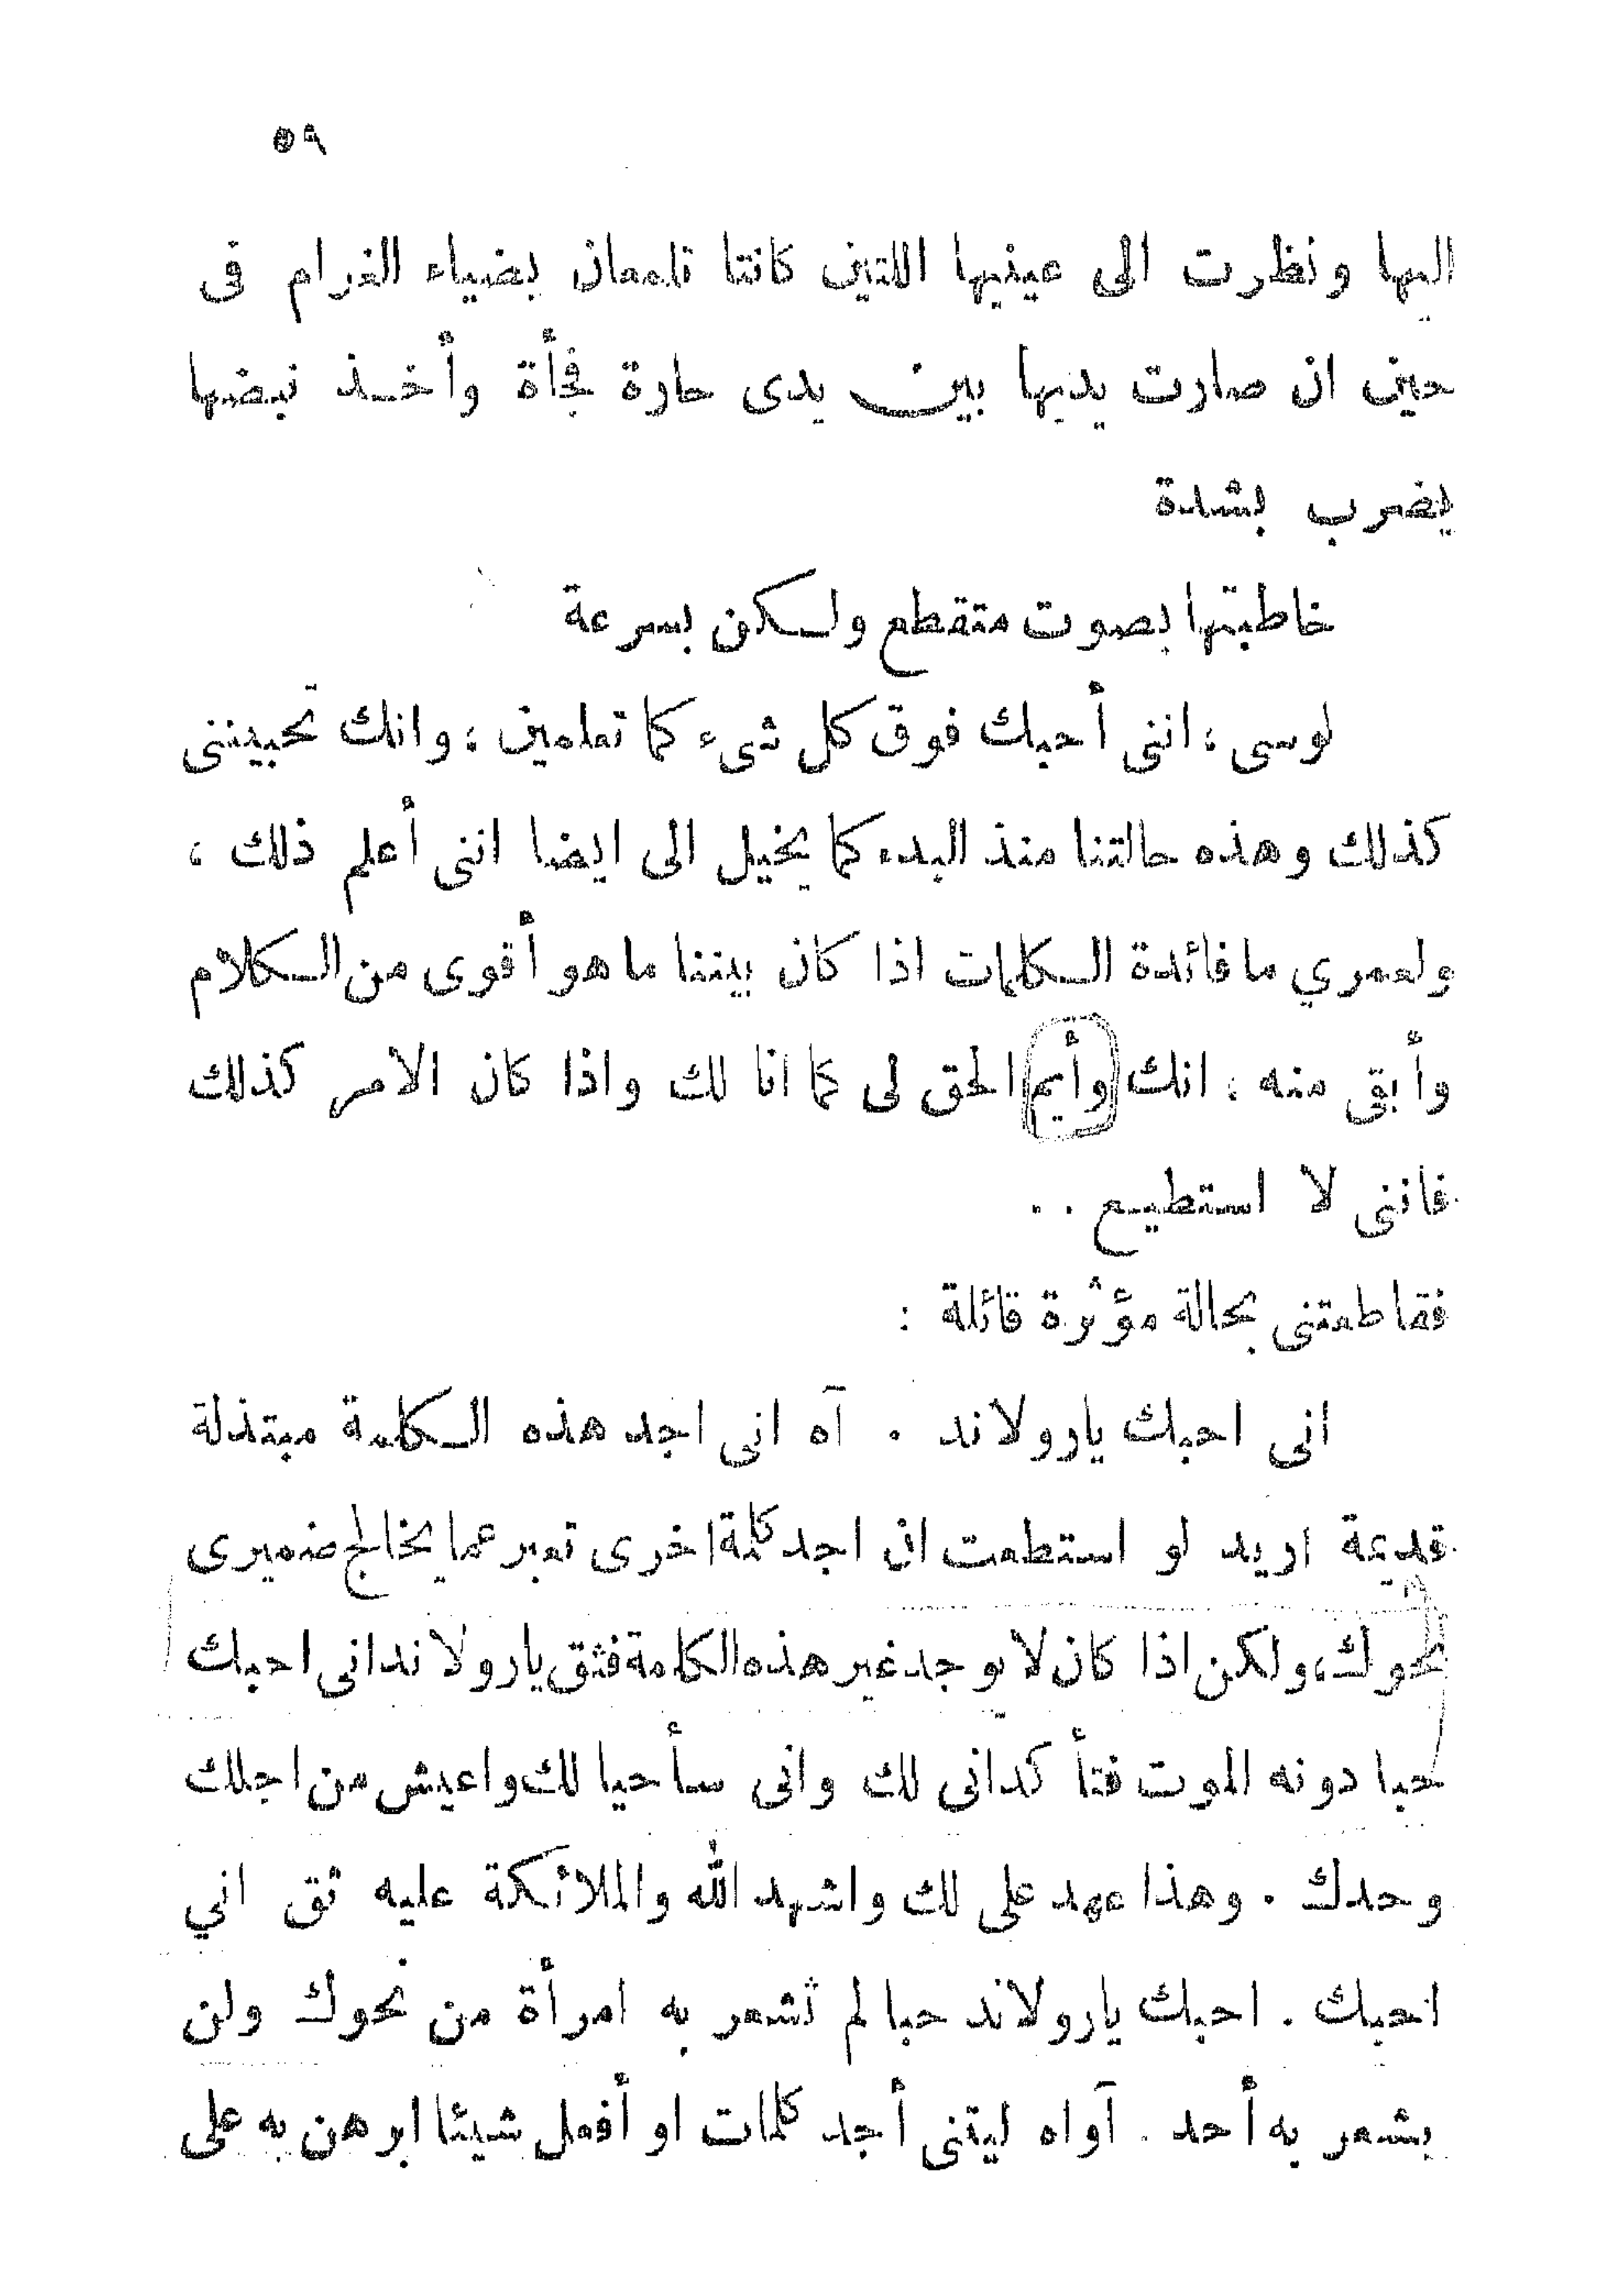 ٥٩
اليها ونظرت الى عينيها اللتين كانتا تلمعان بضياء الغرام فى
حين ان صارت يديها بين يدى حارة فجأة وأخذ نبضها
يضرب بشدة
خاطبتها بصوت متقطع ولكن بسرعة
لوسى ؛ اننى أحبك فوق كل شىء كما تعلمين ؛ وانك تحبيننى
كذلك وهذه حالتنا منذ البدء كما يخيل الى ايضا اننى أعلم ذلك ،
ولعمري ما فائدة الكلمات اذا كان بيننا ما هو أقوى من الكلام
وأبقى منه ؛ انك وأيم الحق لى كما انا لك واذا كان الامر كذلك
فاننى لا استطيع . .
فقاطعتنى بحالة مؤثرة قائلة :
انى احبك يارولاند . آه انى اجد هذه الكلمة مبتذلة
قديمة اريد لو استطعت ان اجد كلمة اخرى تعبر عما يخالج ضميرى
نحوك، ولكن اذا كان لا يوجد غير هذه الكلمة فثق يارولاند انى احبك
حبا دونه الموت فتأ كد انى لك وانى سأحيا لك واعيش من اجلك
وحدك . وهذا عهد على لك واشهد الله والملائكة عليه ثق اني
احبك . احبك يارولاند حبا لم تشعر به امرأة من نحوك ولن
يشعر به أحد . آواه ليتنى أجد كلمات او أفعل شيئا ابرهن به على